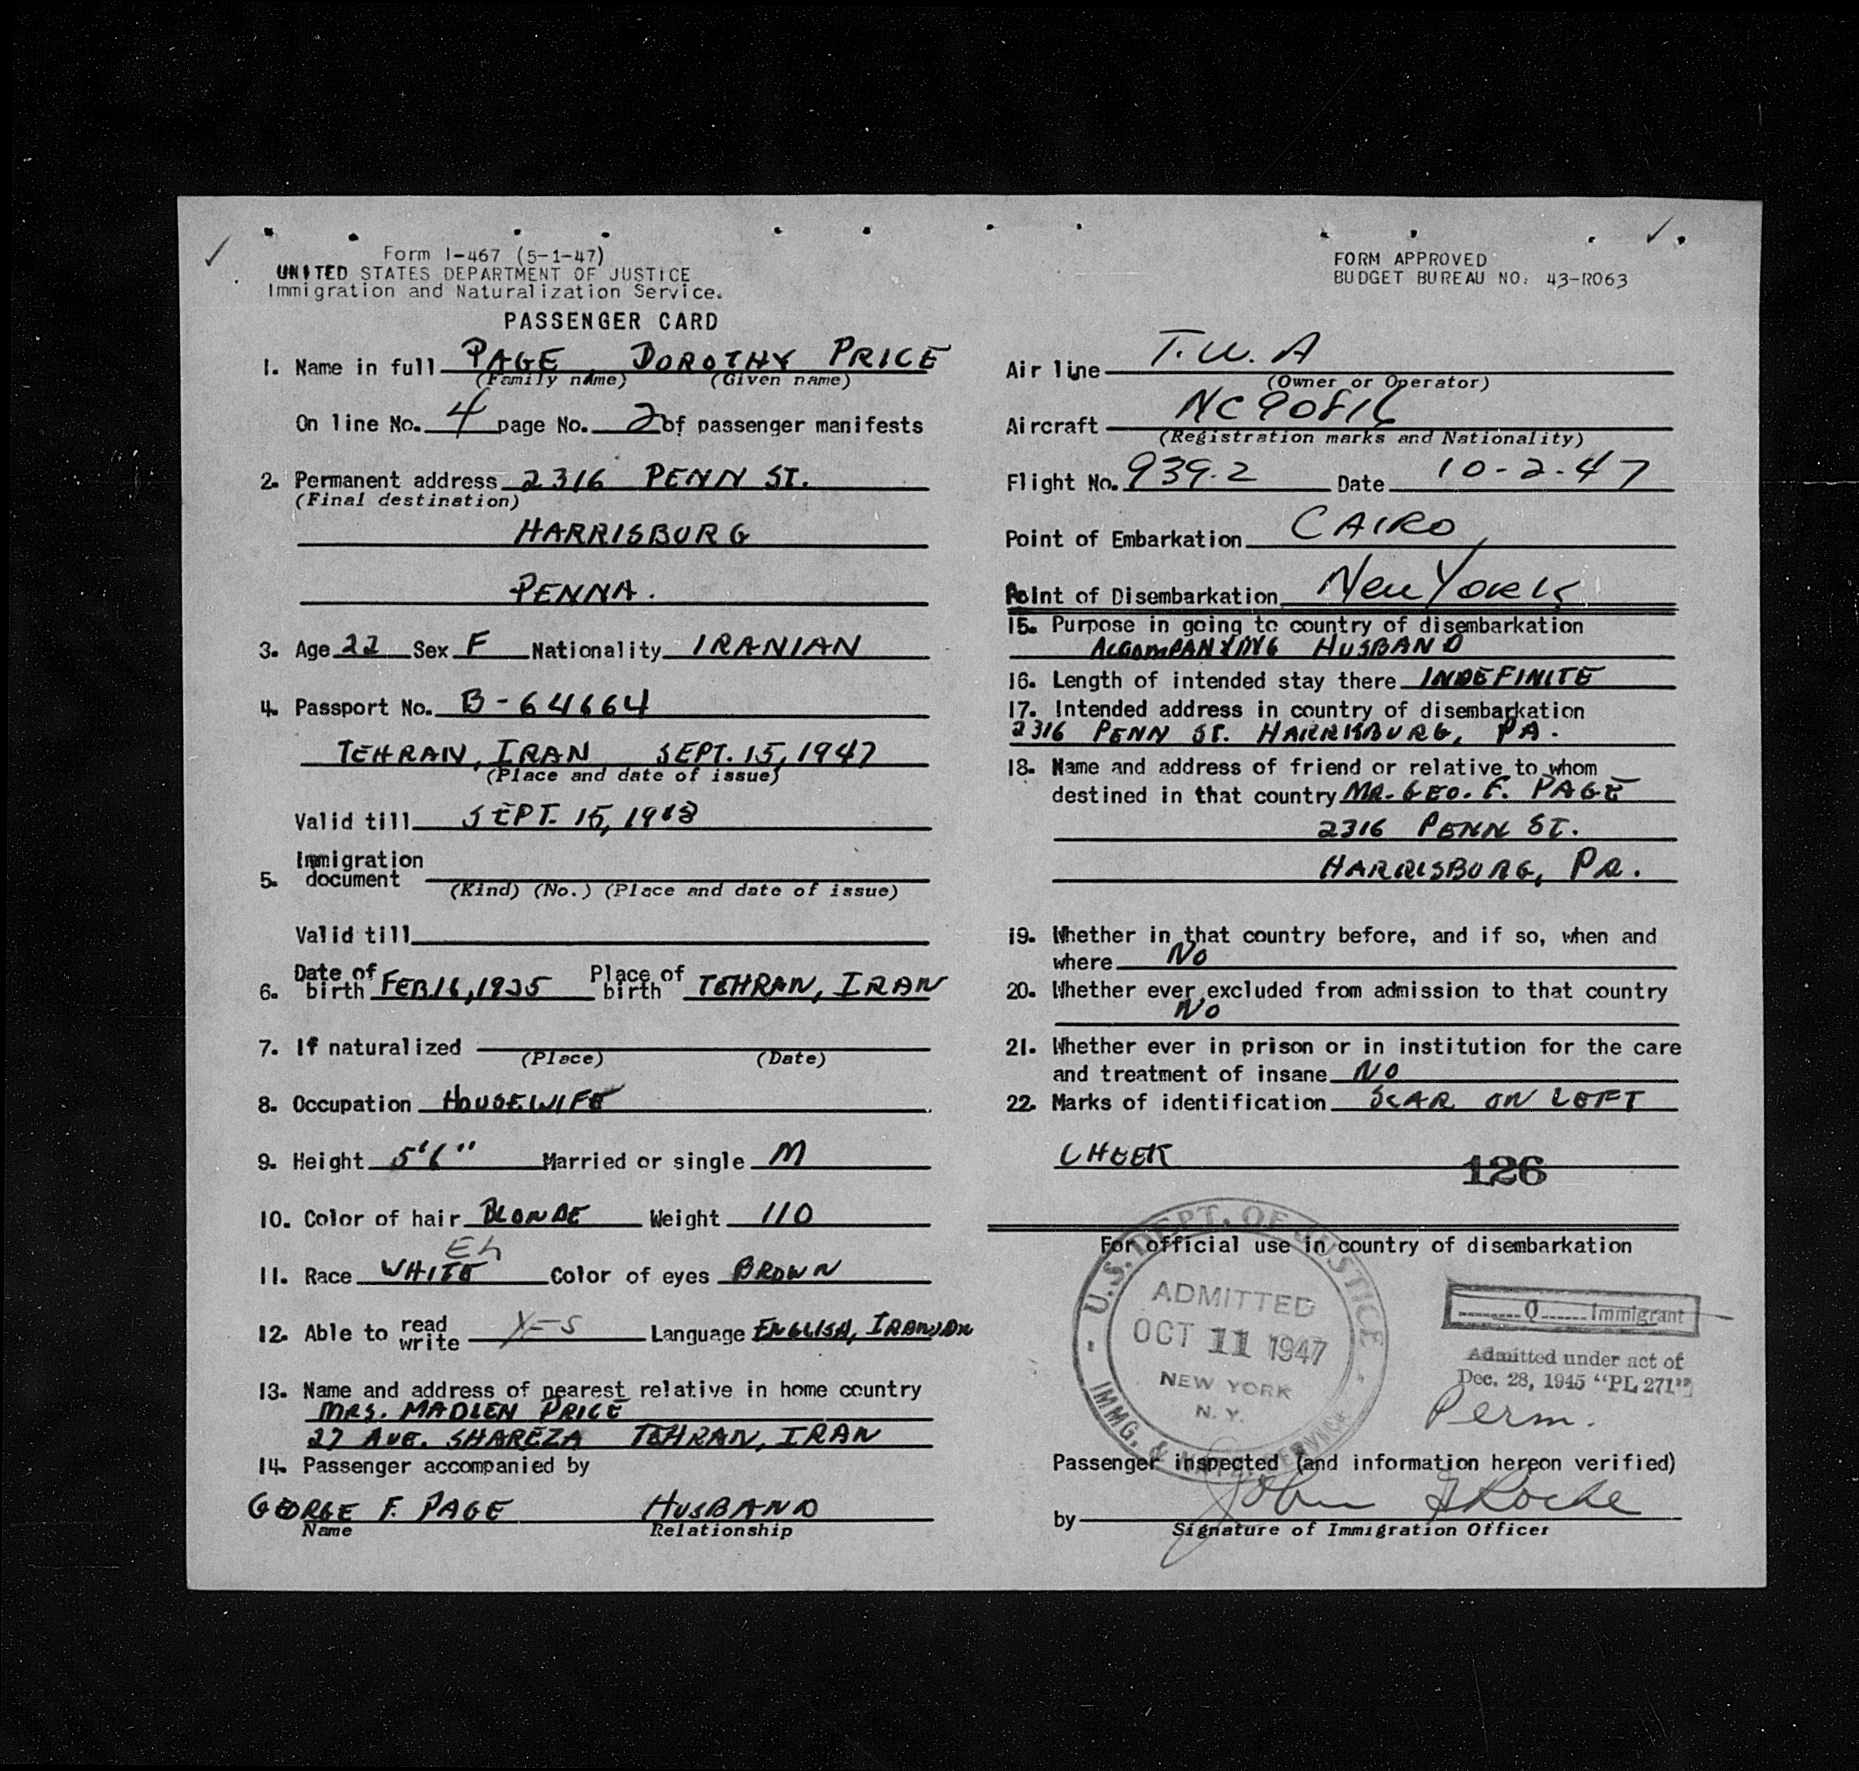 Form I-467 (5-1-47)
UNITED STATES DEPARTMENT OF JUSTICE
Immigration and Naturalization Service.
PASSENGER CARD
1. Name in full PAGE, DOROTHY PRICE
(Family name) (Given name)
On line No. 4 page No. 2 of passenger manifests
2. Permanent address 2316 PENN ST.
(Final destination)
HARRISBURG
PENNA.
3. Age 22 Sex F Nationality IRANIAN
4. Passport No. B-64664
TEHRAN, IRAN SEPT. 15, 1947
(Place and date of issue)
Valid till SEPT. 15,
5. Immigration document
(Kind) (No.) (Place and date of issue)
Valid till
6. Date of birth FEB. 16, 1925 Place of birth TEHRAN, IRAN
7. If naturalized
(Place) (Date)
8. Occupation HOUSEWIFE
9. Height 5'6" Married or single M
10. Color of hair BLONDE Weight 110
11. Race WHITE Color of eyes BROWN
12. Able to read write YES Language ENGLISH, IRANIAN
13. Name and address of nearest relative in home country
MRS. MADLEN PRICE
27 AVE. SHAREZA TEHRAN, IRAN
14. Passenger accompanied by
GEORGE F. PAGE HUSBAND
Name Relationship
FORM APPROVED
BUDGET BUREAU NO. 43-R063
Air line T.W.A
(Owner or Operator)
Aircraft NC90816
(Registration marks and Nationality)
Flight No. 939.2 Date 10-2-47
Point of Embarkation CAIRO
Point of Disembarkation New York
15. Purpose in going to country of disembarkation
ACCOMPANYING HUSBAND
16. Length of intended stay there INDEFINITE
17. Intended address in country of disembarkation
2316 PENN ST. HARRISBURG, PA.
18. Name and address of friend or relative to whom
destined in that country MR. GEO. F. PAGE
2316 PENN ST.
HARRISBURG, PA.
19. Whether in that country before, and if so, when and
where NO
20. Whether ever excluded from admission to that country
NO
21. Whether ever in prison or in institution for the care
and treatment of insane NO
22. Marks of identification SCAR ON LEFT
CHEEK
126
For official use in country of disembarkation
U.S. DEPT. OF JUSTICE
ADMITTED
OCT 11 1947
NEW YORK
N. Y.
IMMG. & NATZ. SERVICE
Q Immigrant
Admitted under act of
Dec. 28, 1945 "PL 271"
Perm.
Passenger inspected (and information hereon verified)
by John Roche
Signature of Immigration Officer